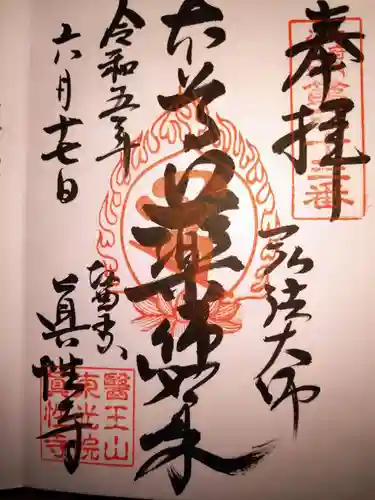 奉拝
弘法大師
本尊薬師如来
令和五年
六月十七日
醫王山
東光院
眞性寺
眞性寺